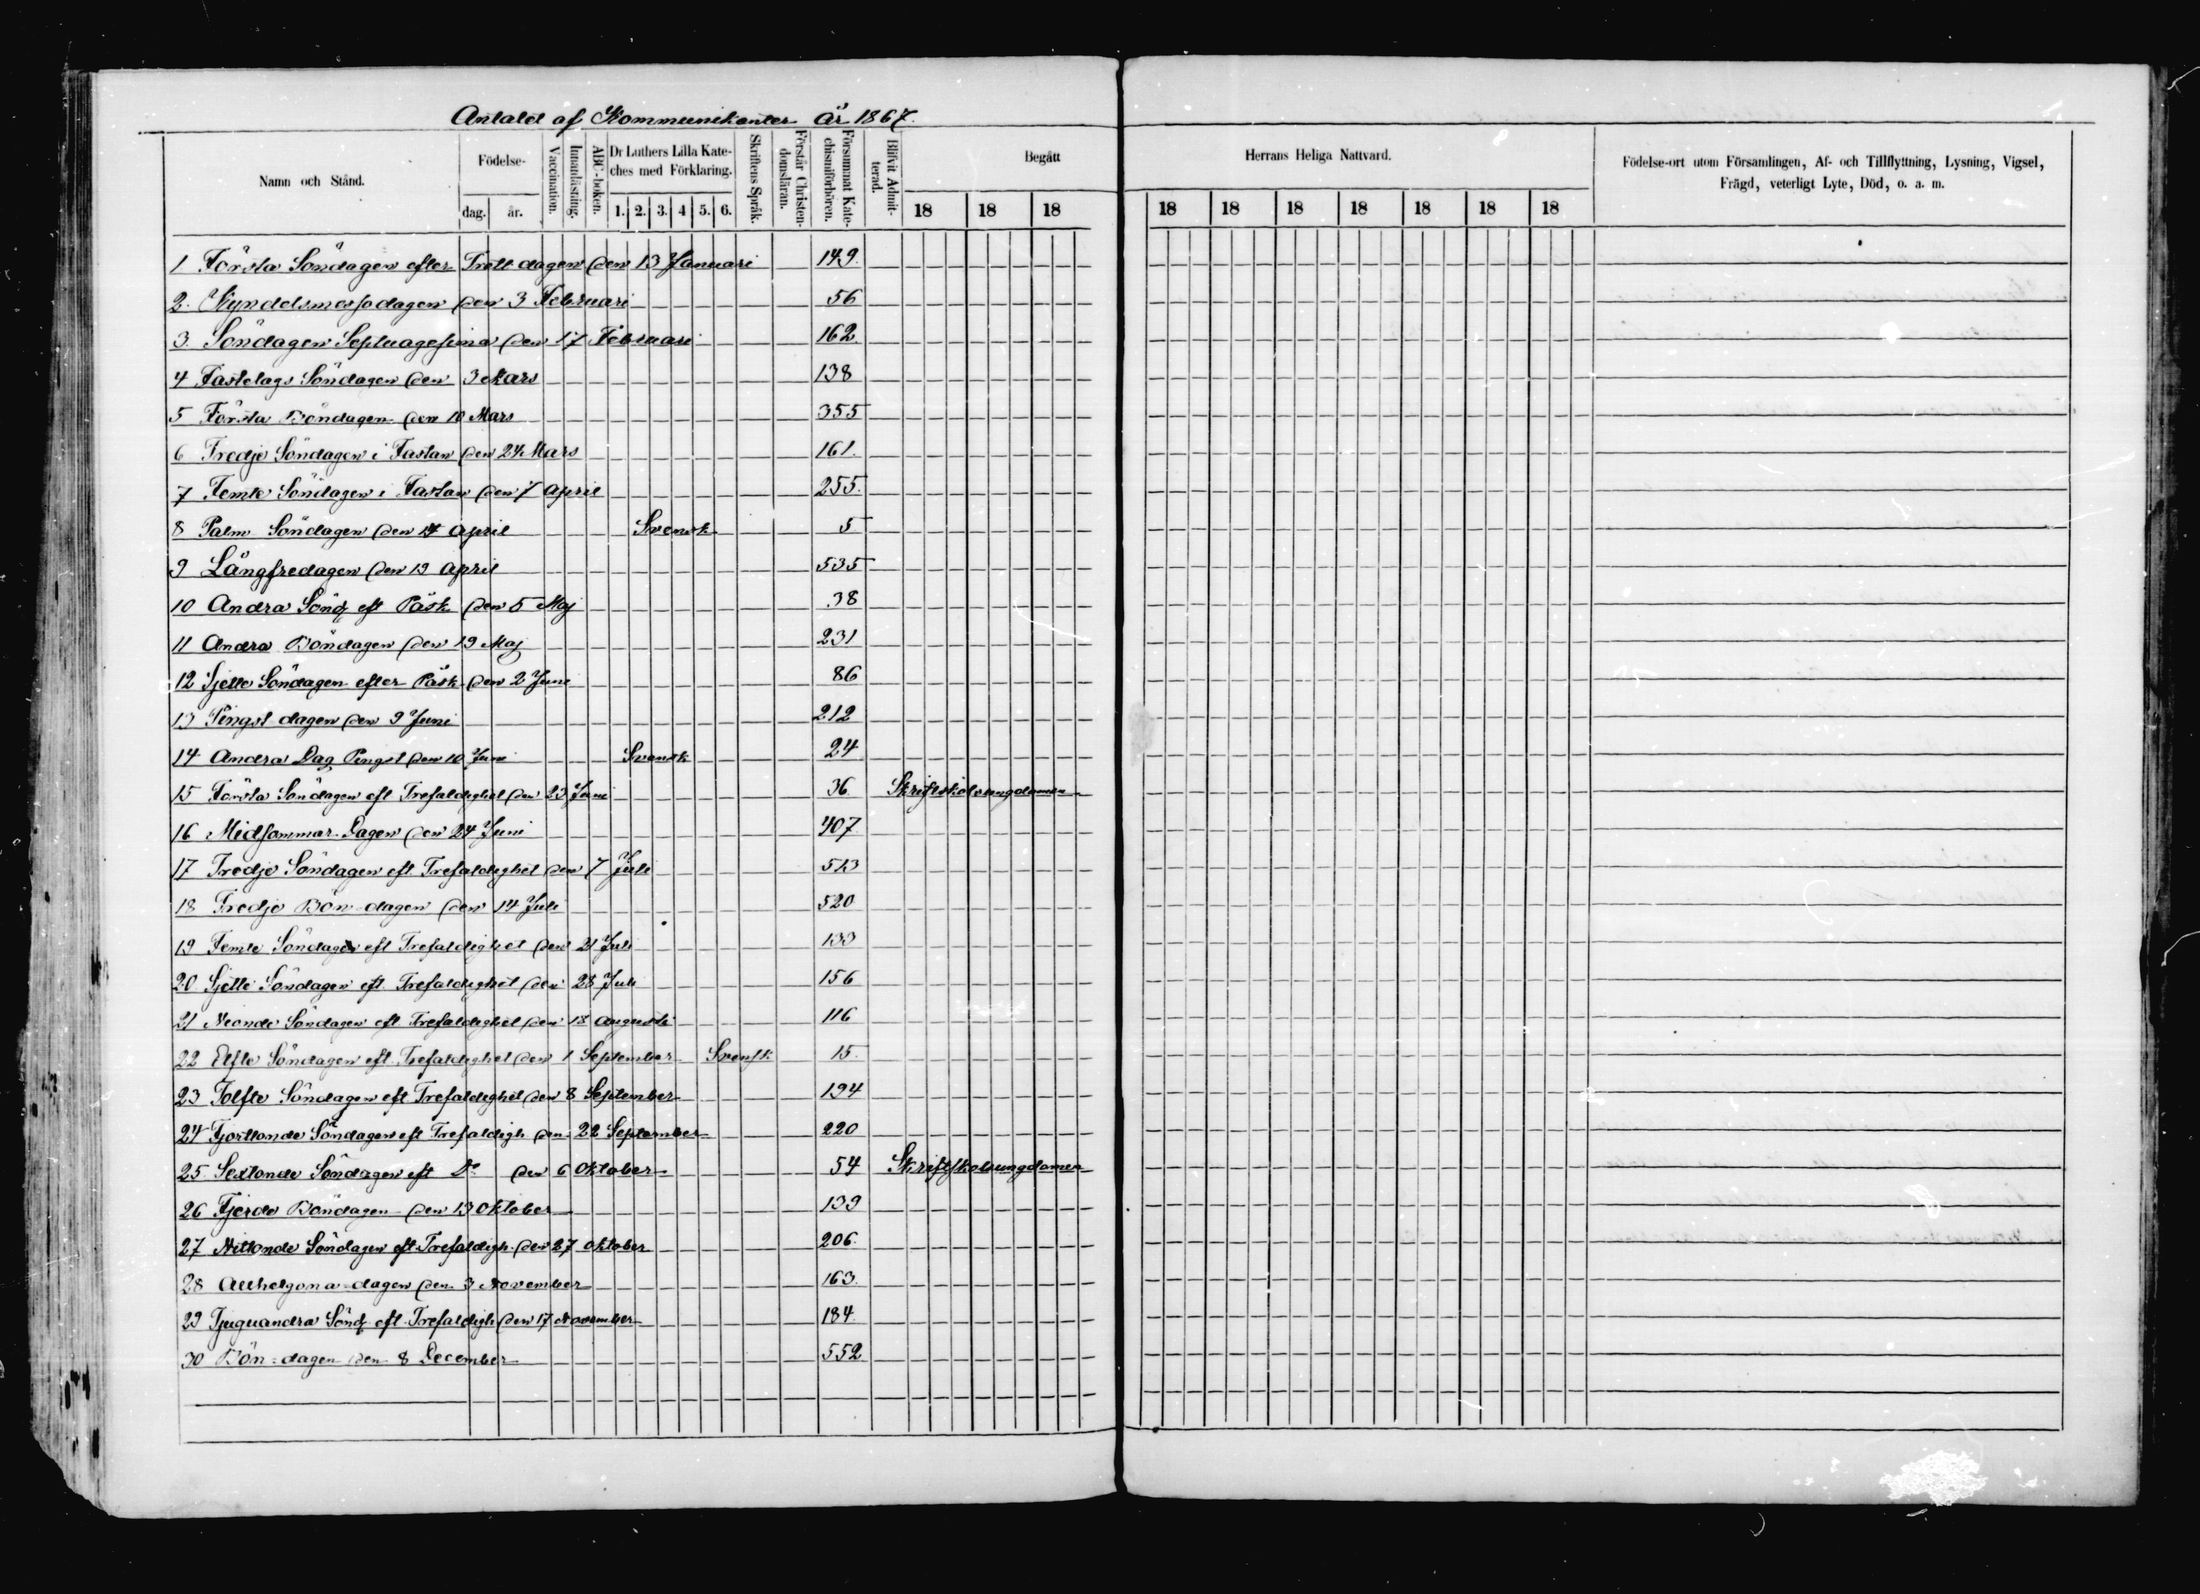 Antalet af Kommunikanter år 1867.
Namn och Stånd. Födelse- dag. år. Vaccination. Innanläsning. ABC-boken. Dr Luthers Lilla Kate-ches med Förklaring. 1. 2. 3. 4 5. 6. Skriftens Språk. Förstår Christen-domsläran. Försummat Kate-chismiförhören. Blifvit Admit-terad. Begått 18 18 18
Herrans Heliga Nattvard. 18 18 18 18 18 18 18
Födelse-ort utom Församlingen, Af- och Tillflyttning, Lysning, Vigsel,
Frägd, veterligt Lyte, Död, o. a. m.
1 Första Söndagen efter Trettdagen den 13 Januari 149.
2. Kyndelsmessodagen den 3 Februari 56
3. Söndagen Septuagesima den 17 Februari 162.
4 Fastelags Söndagen den 3 Mars 138
5 Första Böndagen den 10 Mars 355
6 Tredje Söndagen i Fastan den 24 Mars 161.
7 Femte Söndagen i Fastan den 7 April 255.
8 Palm Söndagen den 14 April Svensk 5
9 Långfredagen den 19 April 535
10 Andra Sönd eft Påsk den 5 Maj 38
11 Andra Böndagen den 19 Maj 231
12 Sjette Söndagen efter Påsk den 2 Juni 86
13 Pingst dagen den 9 Juni 212
14 Andra Dag Pingst den 10 Juni Svensk 24
15 Första Söndagen eft Trefaldighet den 23 Juni 36 Skriftskolsungdomen
16 Midsommar Dagen den 24 Juni 407
17 Tredje Söndagen eft Trefaldighet den 7 Juli 513
18 Tredje Bön-dagen den 14 Juli 520
19 Femte Söndagen eft Trefaldighet den 21 Juli 133
20 Sjette Söndagen eft. Trefaldighet den 28 Juli 156
21 Nionde Söndagen eft Trefaldighet den 18 Augusti 116
22 Elfte Söndagen eft. Trefaldighet den 1 September Svensk 15.
23 Tolfte Söndagen eft Trefaldighet den 8 September 194
24 Fjortonde Söndagen eft Trefaldigh den 22 September 220
25 Sextonde Söndagen eft Do den 6 Oktober 54 Skriftskolsungdomen
26 Fjerde Böndagen den 13 Oktober 139
27 Nittonde Söndagen eft Trefaldigh. den 27 Oktober 206.
28 Allhelgona-dagen den 3 November 163.
29 Tjuguandra Sönd eft Trefaldigh den 17 November 184.
30 Bön=dagen den 8 December 552